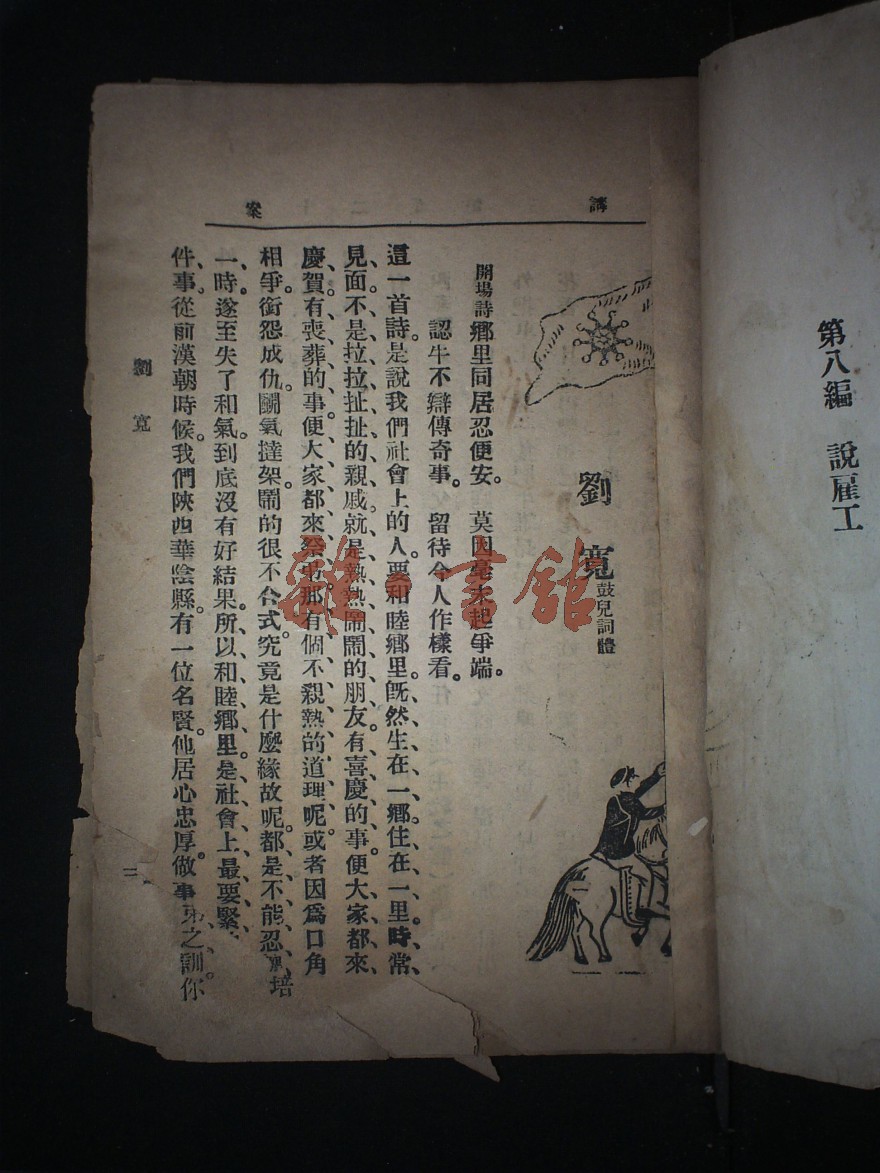 第八編　說雇工
講
案
劉寬
鼓兒詞體
開場詩 鄉里同居忍便安。莫因毫末起爭端。
認牛不辯傳奇事。留待令人作樣看。
這一首詩。是說我們社會上的人。要和睦鄉里。旣然生在一鄉、住在一里、時常、
見面、不是拉拉扯扯的親戚、就是熱熱鬧鬧的朋友。有喜慶的事、便大家都來
慶賀。有喪葬的事、便大家都來祭弔。那有個不親熱的道理呢。或者因爲口角
相爭。銜怨成仇。鬭氣撻架。鬧的很不合式。究竟是什麼緣故呢。都是不能忍
培
一時。遂至失了和氣。到底沒有好結果。所以和睦鄉里。是社會上最要緊
件事。從前漢朝時候。我們陝西華陰縣。有一位名賢。他居心忠厚。做事
之訓你
劉寬
雜·書館